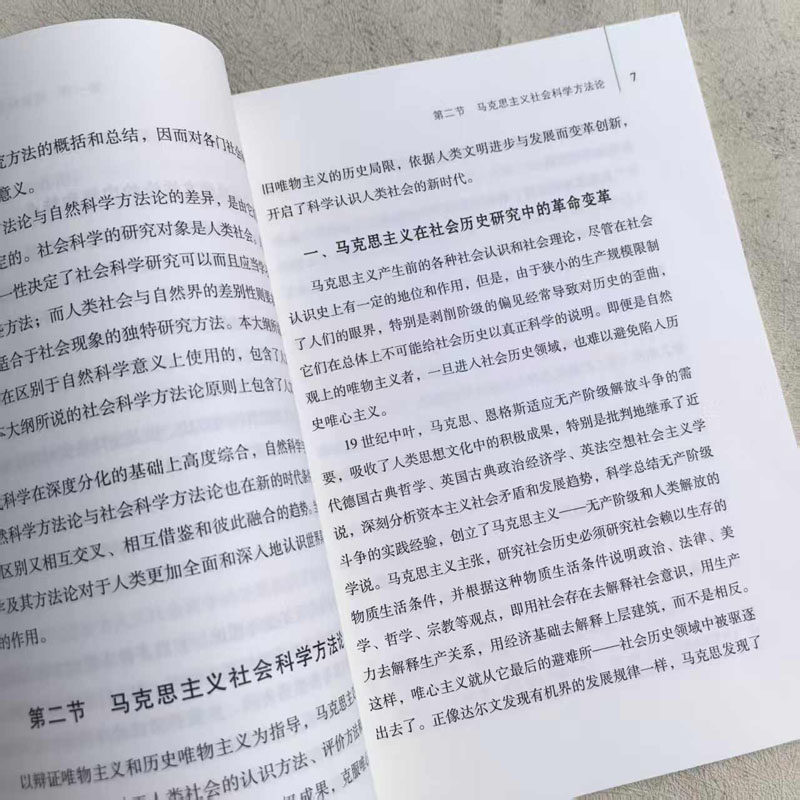 究方法的概括和总结，因而对各门社会
意义。
方法论与自然科学方法论的差异，是由它
定的。社会科学的研究对象是人类社会。人
一性决定了社会科学研究可以而且应当
方法；而人类社会与自然界的差别性则
适合于社会现象的独特研究方法。本大纲所
在区别于自然科学意义上使用的，包含了人
本大纲所说的社会科学方法论原则上包含了人
科学在深度分化的基础上高度综合，自然科学
然科学方法论与社会科学方法论也在新的时代
区别又相互交叉、相互借鉴和彼此融合的趋势。
及其方法论对于人类更加全面和深入地认识世界
的作用。
第二节 马克思主义社会科学方法论
以辩证唯物主义和历史唯物主义为指导，马克思主义
于人类社会的认识方法、评价方法
成果，克服唯心
第二节 马克思主义社会科学方法论 7
旧唯物主义的历史局限，依据人类文明进步与发展而变革创新，
开启了科学认识人类社会的新时代。
一、马克思主义在社会历史研究中的革命变革
马克思主义产生前的各种社会认识和社会理论，尽管在社会
认识史上有一定的地位和作用，但是，由于狭小的生产规模限制
了人们的眼界，特别是剥削阶级的偏见经常导致对历史的歪曲，
它们在总体上不可能给社会历史以真正科学的说明。即便是自然
观上的唯物主义者，一旦进入社会历史领域，也难以避免陷入历
史唯心主义。
19 世纪中叶，马克思、恩格斯适应无产阶级解放斗争的需
要，吸收了人类思想文化中的积极成果，特别是批判地继承了近
代德国古典哲学、英国古典政治经济学、英法空想社会主义学
说，深刻分析资本主义社会矛盾和发展趋势，科学总结无产阶级
斗争的实践经验，创立了马克思主义——无产阶级和人类解放的
学说。马克思主义主张，研究社会历史必须研究社会赖以生存的
物质生活条件，并根据这种物质生活条件说明政治、法律、美
学、哲学、宗教等观点，即用社会存在去解释社会意识，用生产
力去解释生产关系，用经济基础去解释上层建筑，而不是相反。
这样，唯心主义就从它最后的避难所——社会历史领域中被驱逐
出去了。正像达尔文发现有机界的发展规律一样，马克思发现了